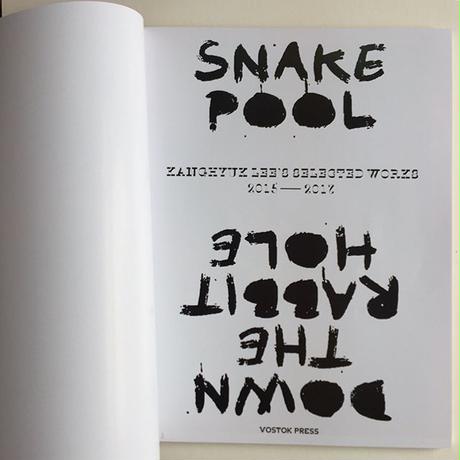 SNAKE
POOL
KANGHYUK LEE'S SELECTED WORKS
2015—2017
DOWN
THE
RABBIT
HOLE
VOSTOK PRESS